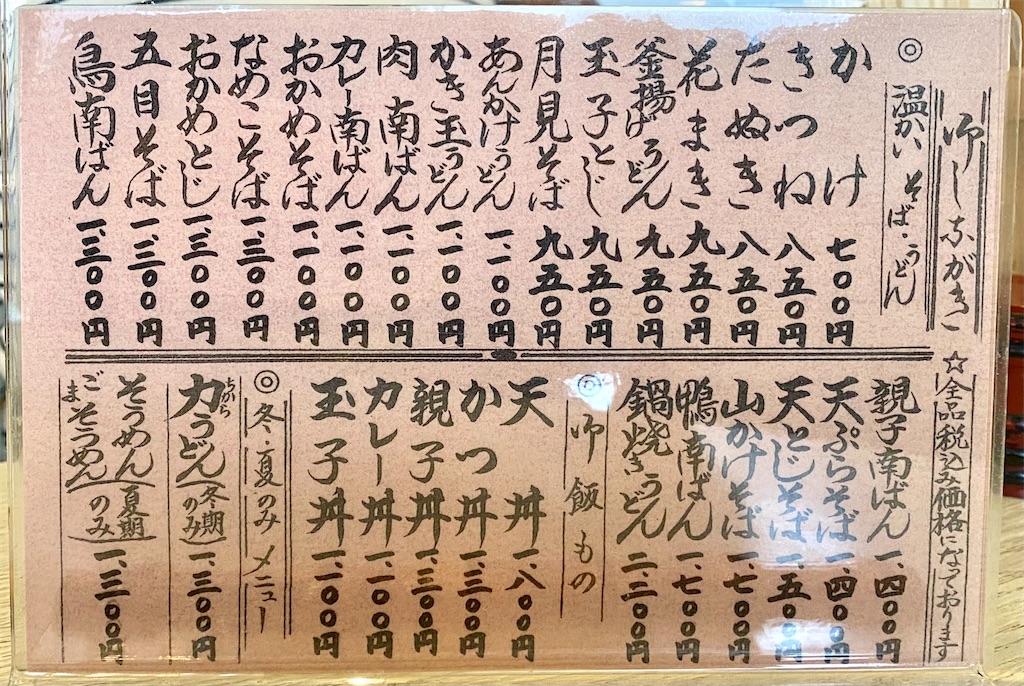 御しながき
◎温かいそば・うどん
かけ 七〇〇円
きつね 八五〇円
たぬき 八五〇円
花まき 九五〇円
釜揚げうどん 九五〇円
玉子とじ 九五〇円
月見そば 九五〇円
あんかけうどん 一、一〇〇円
かき玉うどん 一、一〇〇円
肉南ばん 一、一〇〇円
カレー南ばん 一、一〇〇円
おかめそば 一、一〇〇円
なめこそば 一、三〇〇円
おかめとじ 一、三〇〇円
五目そば 一、三〇〇円
鳥南ばん 一、三〇〇円
☆全品税込み価格になっております
親子南ばん 一、四〇〇円
天ぷらそば 一、四〇〇円
天とじそば 一、五〇〇円
山かけそば 一、七〇〇円
鴨南ばん 一、七〇〇円
鍋焼きうどん 二、三〇〇円
◎御飯もの
天丼 一、八〇〇円
かつ丼 一、三〇〇円
親子丼 一、三〇〇円
カレー丼 一、一〇〇円
玉子丼 一、一〇〇円
◎冬・夏のみメニュー
ちから
力うどん(冬期のみ) 一、三〇〇円
そうめん(夏期のみ) 一、三〇〇円
ごまそうめん